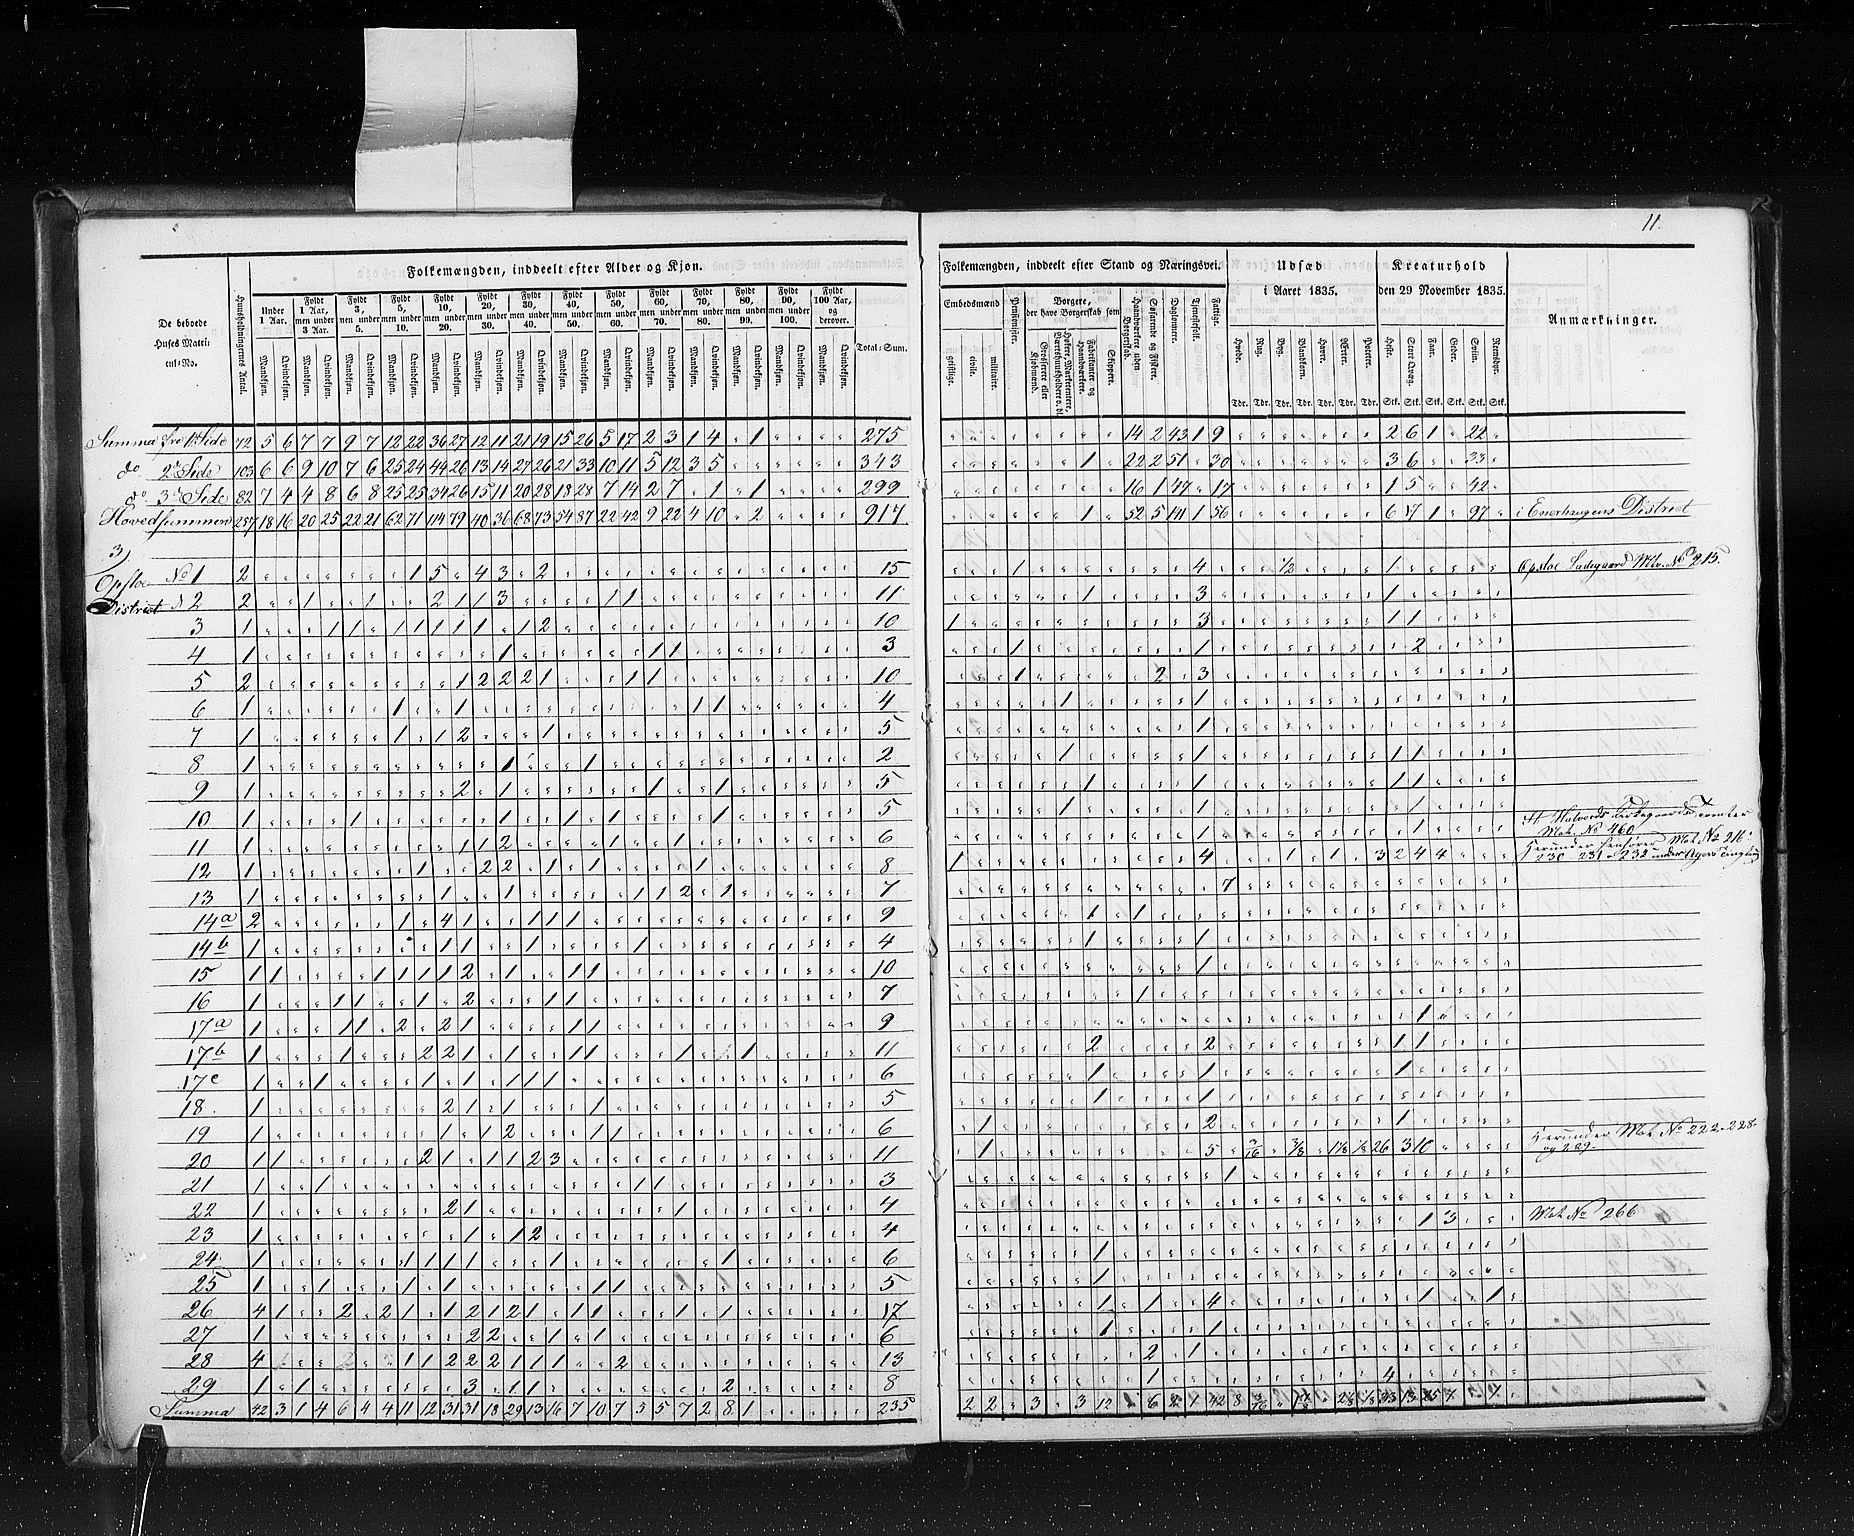 11.
Folkemængden, inddeelt efter Alder og Kjøn.
De beboede Huses Matricul-No.
Huusholdningernes Antal.
Under 1 Aar.
Fyldt 1 Aar, men under 3 Aar.
Fyldt 3, men under 5.
Fyldt 5, men under 10.
Fyldt 10, men under 20.
Fyldt 20, men under 30.
Fyldt 30, men under 40.
Fyldt 40, men under 50.
Fyldt 50, men under 60.
Fyldt 60, men under 70.
Fyldt 70, men under 80.
Fyldt 80, men under 90.
Fyldt 90, men under 100.
Fyldt 100 Aar, og derover.
Mandkjøn. Qvindekjøn.
Total-Sum.
Folkemængden, inddeelt efter Stand og Næringsvei.
Embedsmænd
geistlige. civile. militaire.
Pensionister.
Borgere, der have Borgerskab som
Skippere.
Haandværkere uden Borgerskab.
Daglønnere.
Tjenestefolk.
Fattige.
Udsæd i Aaret 1835.
Hvede. Rug. Byg. Blandkorn. Havre. Erter. Poteter.
Tdr. Tdr. Tdr. Tdr. Tdr. Tdr. Tdr.
Kreaturhold den 29 November 1835.
Heste. Stort Qvæg. Faar. Geder. Sviin. Reensdyr.
Stk. Stk. Stk. Stk. Stk. Stk.
Anmærkninger.
Summa fra 1ste Side 72 5 6 7 7 9 7 12 22 36 27 12 11 21 19 15 26 5 17 2 3 1 4 1 275 14 2 43 1 9 2 6 1 22
do 2d Side 103 6 6 9 10 7 6 25 24 44 26 13 14 27 26 21 33 10 11 5 12 3 5 343 1 22 2 51 30 3 6 33
do 3d Side 82 7 4 4 8 6 8 25 25 34 26 15 11 20 28 18 28 7 14 2 7 1 1 299 16 1 47 17 1 5 42
Hovedsummen 257 18 16 20 25 22 21 62 71 114 79 40 36 68 73 54 87 22 42 9 22 4 10 2 917 1 52 5 141 1 56 6 17 1 97 i Enerhaugens District
3)
Opsloe District
No 1 2 1 5 4 3 2 15 1 4 1/2 1 Opsloe Ladegaard Mtr. No 215.
2 2 1 1 2 1 1 3 1 1 11 1 3 1
3 1 1 1 1 1 1 1 1 1 2 10 1 3 1 1
4 1 1 1 1 3 1 1 2
5 2 1 2 2 2 1 1 1 10 1 2 3
6 1 1 1 1 1 4 1 1
7 1 1 1 2 1 5 1
8 1 1 1 2 1 1 1 1
9 1 2 1 1 1 5 1 1 1 1
10 1 1 1 1 1 1 5 1 1 1
11 1 1 1 2 1 1 6 1
Mat. No 460
12 1 1 2 2 1 1 1 8 1 4 1 1 3 2 4 4 Herunder henhører Mat. No 216
230 231 232
13 1 1 1 1 1 2 1 7 7
14a 2 1 4 1 1 1 1 9 1 1
14b 1 1 1 1 1 4 1 1
15 1 1 1 1 1 1 2 1 1 1 10 1
16 1 1 1 1 2 1 1 7 1
17a 1 1 1 2 2 1 1 1 9 1
17b 1 1 2 2 1 1 1 1 1 1 11 2 2 1 1
17c 1 1 1 1 1 1 1 6 1 1 1
18. 1 2 1 1 1 5 1 1
19 1 1 1 2 1 1 6 1 2 1
20 1 1 2 1 1 1 2 3 11 1 5 26 3 10 Herunder Mat No 222. 228.
og 229.
21 1 1 1 1 3 1
22 1 2 1 1 4 1 3 Mat No 266
23 1 1 1 2 4
24 1 1 1 1 1 1 1 6 1
25 1 1 1 1 1 1 5 1
26 4 1 2 2 1 1 2 1 2 1 1 1 1 1 17 1 1 4 1 1
27 1 2 2 1 1 6 1 1
28 4 1 1 2 2 2 1 1 1 2 13 2 1
29 1 1 3 1 1 2 8 1 4
Summa 42 3 1 4 6 4 4 11 12 31 31 18 29 13 16 7 10 7 5 5 7 2 8 1 235 2 2 3 3 12 6 2 1 42 8